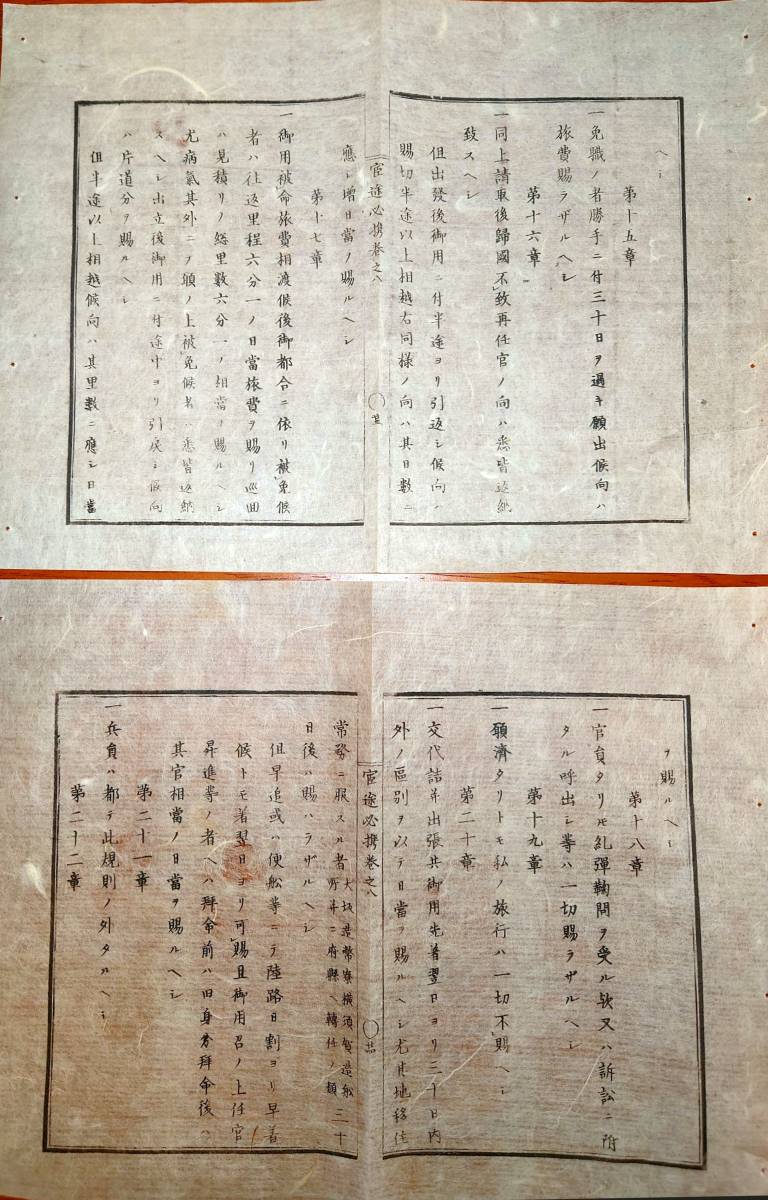 ヘシ
第十五章
一免職ノ者勝手ニ付三十日ヲ過キ願出候向ハ
旅費賜ラザルヘシ
第十六章
一同上請取後歸國不致再任官ノ向ハ悉皆返納
致スヘシ
但出發後御用ニ付半途ヨリ引返シ候向ハ
賜切半途以上相越右同様ノ向ハ其日數ニ
官途必携卷之八
應シ增日當ノ賜ルヘシ
第十七章
一御用被命旅費相渡候後御都合ニ依リ被免候
者ハ往返里程六分一ノ日當旅費ヲ賜リ巡回
ハ見積リノ総里數六分一ノ相當ノ賜ルヘシ
尤病氣其外ニヲ願ノ上被免候者ハ悉皆返納
スヘシ出立後御用ニ付途中ヨリ引戻シ候向
ハ片道分ヲ賜ルヘシ
但半途以上相越候向ハ其里數ニ應シ日當
ヲ賜ルヘシ
第十八章
一官員タリモ糺彈鞠問ヲ受ル欤又ハ訴訟ニ附
タル呼出シ等ハ一切賜ラザルヘシ
第十九章
一願濟タリトモ私ノ旅行ハ一切不賜ヘシ
第二十章
一交代詰并出張共御用先着翌日ヨリ三十日内
外ノ區別ヲ以テ日當ヲ賜ルヘシ尤其地移住
官途必携卷之八
常務ニ服スル者大坂造幣寮横須賀造船所并ニ府縣ヘ轉任ノ類三十
日後ハ賜ハラザルヘシ
但早追或ハ便舩等ニテ陸路日割ヨリ早着
候トモ着翌日ヨリ可賜且御用召ノ上任官
昇進等ノ者ヘハ拜命前ハ旧身分拜命後ハ
其官相當ノ日當ヲ賜ルヘシ
第二十一章
一兵負ハ都テ此規則ノ外タルヘシ
第二十二章